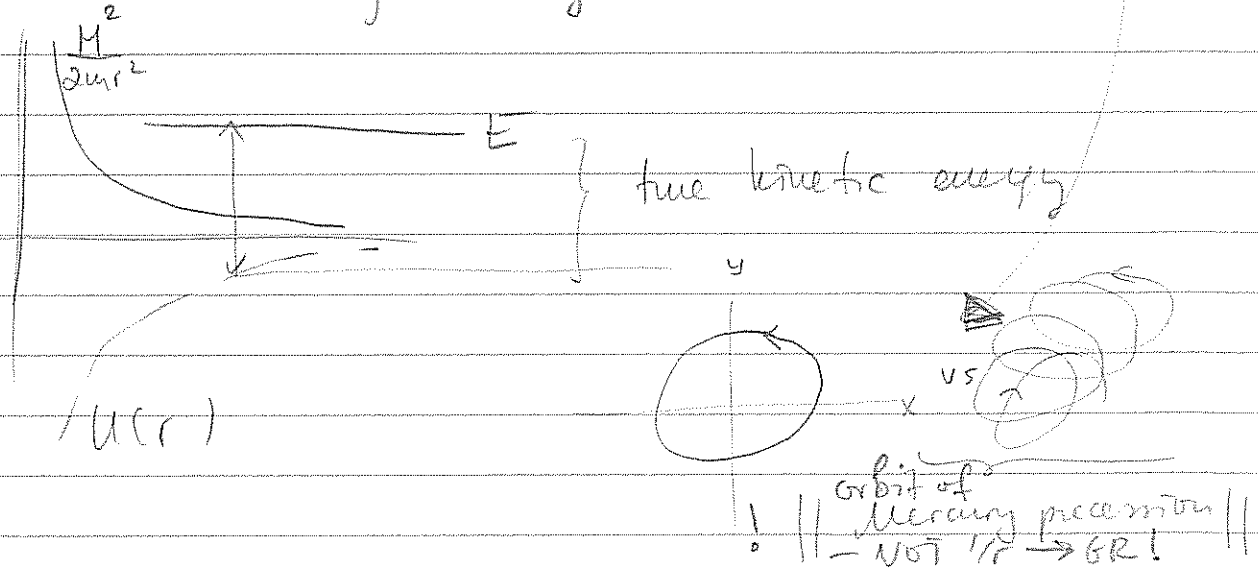 M²
2mr²
E
} true kinetic energy
U(r)
y
x
vs
orbit of
! || Mercury precession ||
— NOT 1/r → GR!